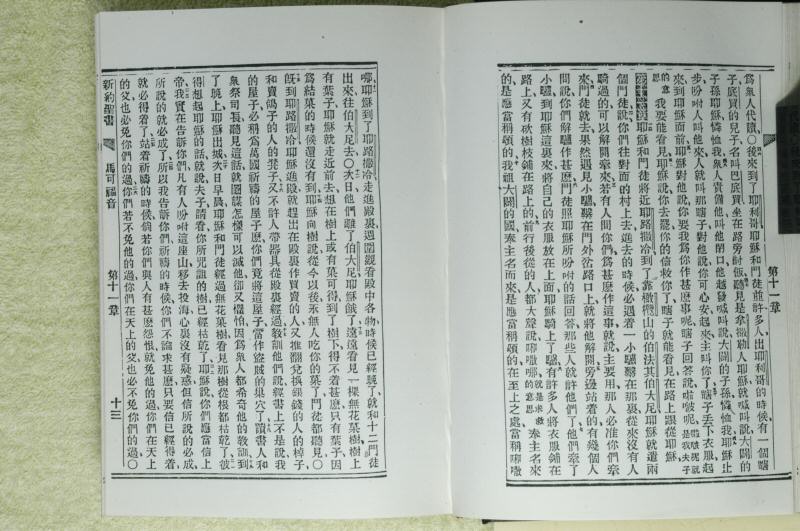 爲衆人代贖〇後來到了耶利哥耶穌和門徒並許多人出耶利哥的時候有一個瞎
子底買的兒子名叫巴底買坐在路旁討飯聽見是拿撒勒人耶穌就喊叫說大闢的
子孫耶穌憐恤我衆人責備他叫他閉口他越發喊叫說大闢的子孫憐恤我耶穌止
步吩咐人叫他來人就叫那瞎子對他說你可心安起來主叫你了瞎子丟下衣服起
來到耶穌面前耶穌對他說你要我爲你作甚麼事呢瞎子回答說啦波呢就是我夫子
的意思我要能看見耶穌說你去罷你的信救你了瞎子就能看見在路上跟從耶穌
耶穌和門徒將近耶路撒冷到了靠橄欖山的伯法其伯大尼耶穌就遣兩
個門徒說你們往對面的村上去進去的時候必遇着一小驢在那裏從來沒有人
騎過的可以解開牽來若有人問你們爲甚麼作這事就說主要用那人必准你們牽
來門徒就去果然遇見小驢在門外岔路口上就將他解開旁邊站着的有幾個人
問說你們解驢作甚麼門徒照耶穌所吩咐的話回答那些人就許他們了他們牽了
小驢到耶穌這裏來將自己的衣服放在上面耶穌騎上了驢有許多人將衣服鋪在
路上又有砍樹枝鋪在路上的前行後從的人都大聲說就是求救的意思奉主名來
的是應當稱頌的我祖大闢的國奉主名而來是應當稱頌的在至上之處當稱
第十一章
哪耶穌到了耶路撒冷走進殿裏週圍觀看殿中各物時候已經晚了就和十二門徒
出來往伯大尼去〇次日他們離了伯大尼耶穌餓了遠遠看見一棵無花菓樹上
有葉子耶穌就走近前去想在樹上或有菓可得到了樹下得不着甚麼只有葉子因
爲結菓的時候還沒有到耶穌向樹說從今以後永無人吃你的菓了門徒都聽見〇
既到耶路撒冷耶穌進殿就趕出在殿裏作買賣的人又推翻兌換銀錢的人的棹子
和賣鴿子的人的凳子又不許人帶器具從殿裏經過敎訓他們說經書上不是說我
的屋子必稱爲萬國祈禱的屋子麽你們竟將這屋子當作盜賊的巢穴了讀書人和
衆祭司長聽見這話就圖謀怎樣可以滅他卻又懼怕因爲衆人都希奇他的敎訓到
了晚上耶穌出城次日早晨耶穌和門徒經過無花菓樹看見那樹從根都枯乾了彼
得想起耶穌的話就說夫子請看你所咒詛的樹已經枯乾了耶穌說你們應當信上
帝我實在告訴你們凡有人吩咐這座山移去投海心裏沒有疑惑但信所說的必成
所說的就必成了所以我告訴你們祈禱的時候你們不論求甚麼只要信已經得着
就必得着了站着祈禱的時候倘若你們與人有甚麼怨恨就免他的過你們在天上
的父也必免你們的過你們若不免他的過你們在天上的父也必不免你們的過〇
新約聖書 馬可福音 第十一章 十三